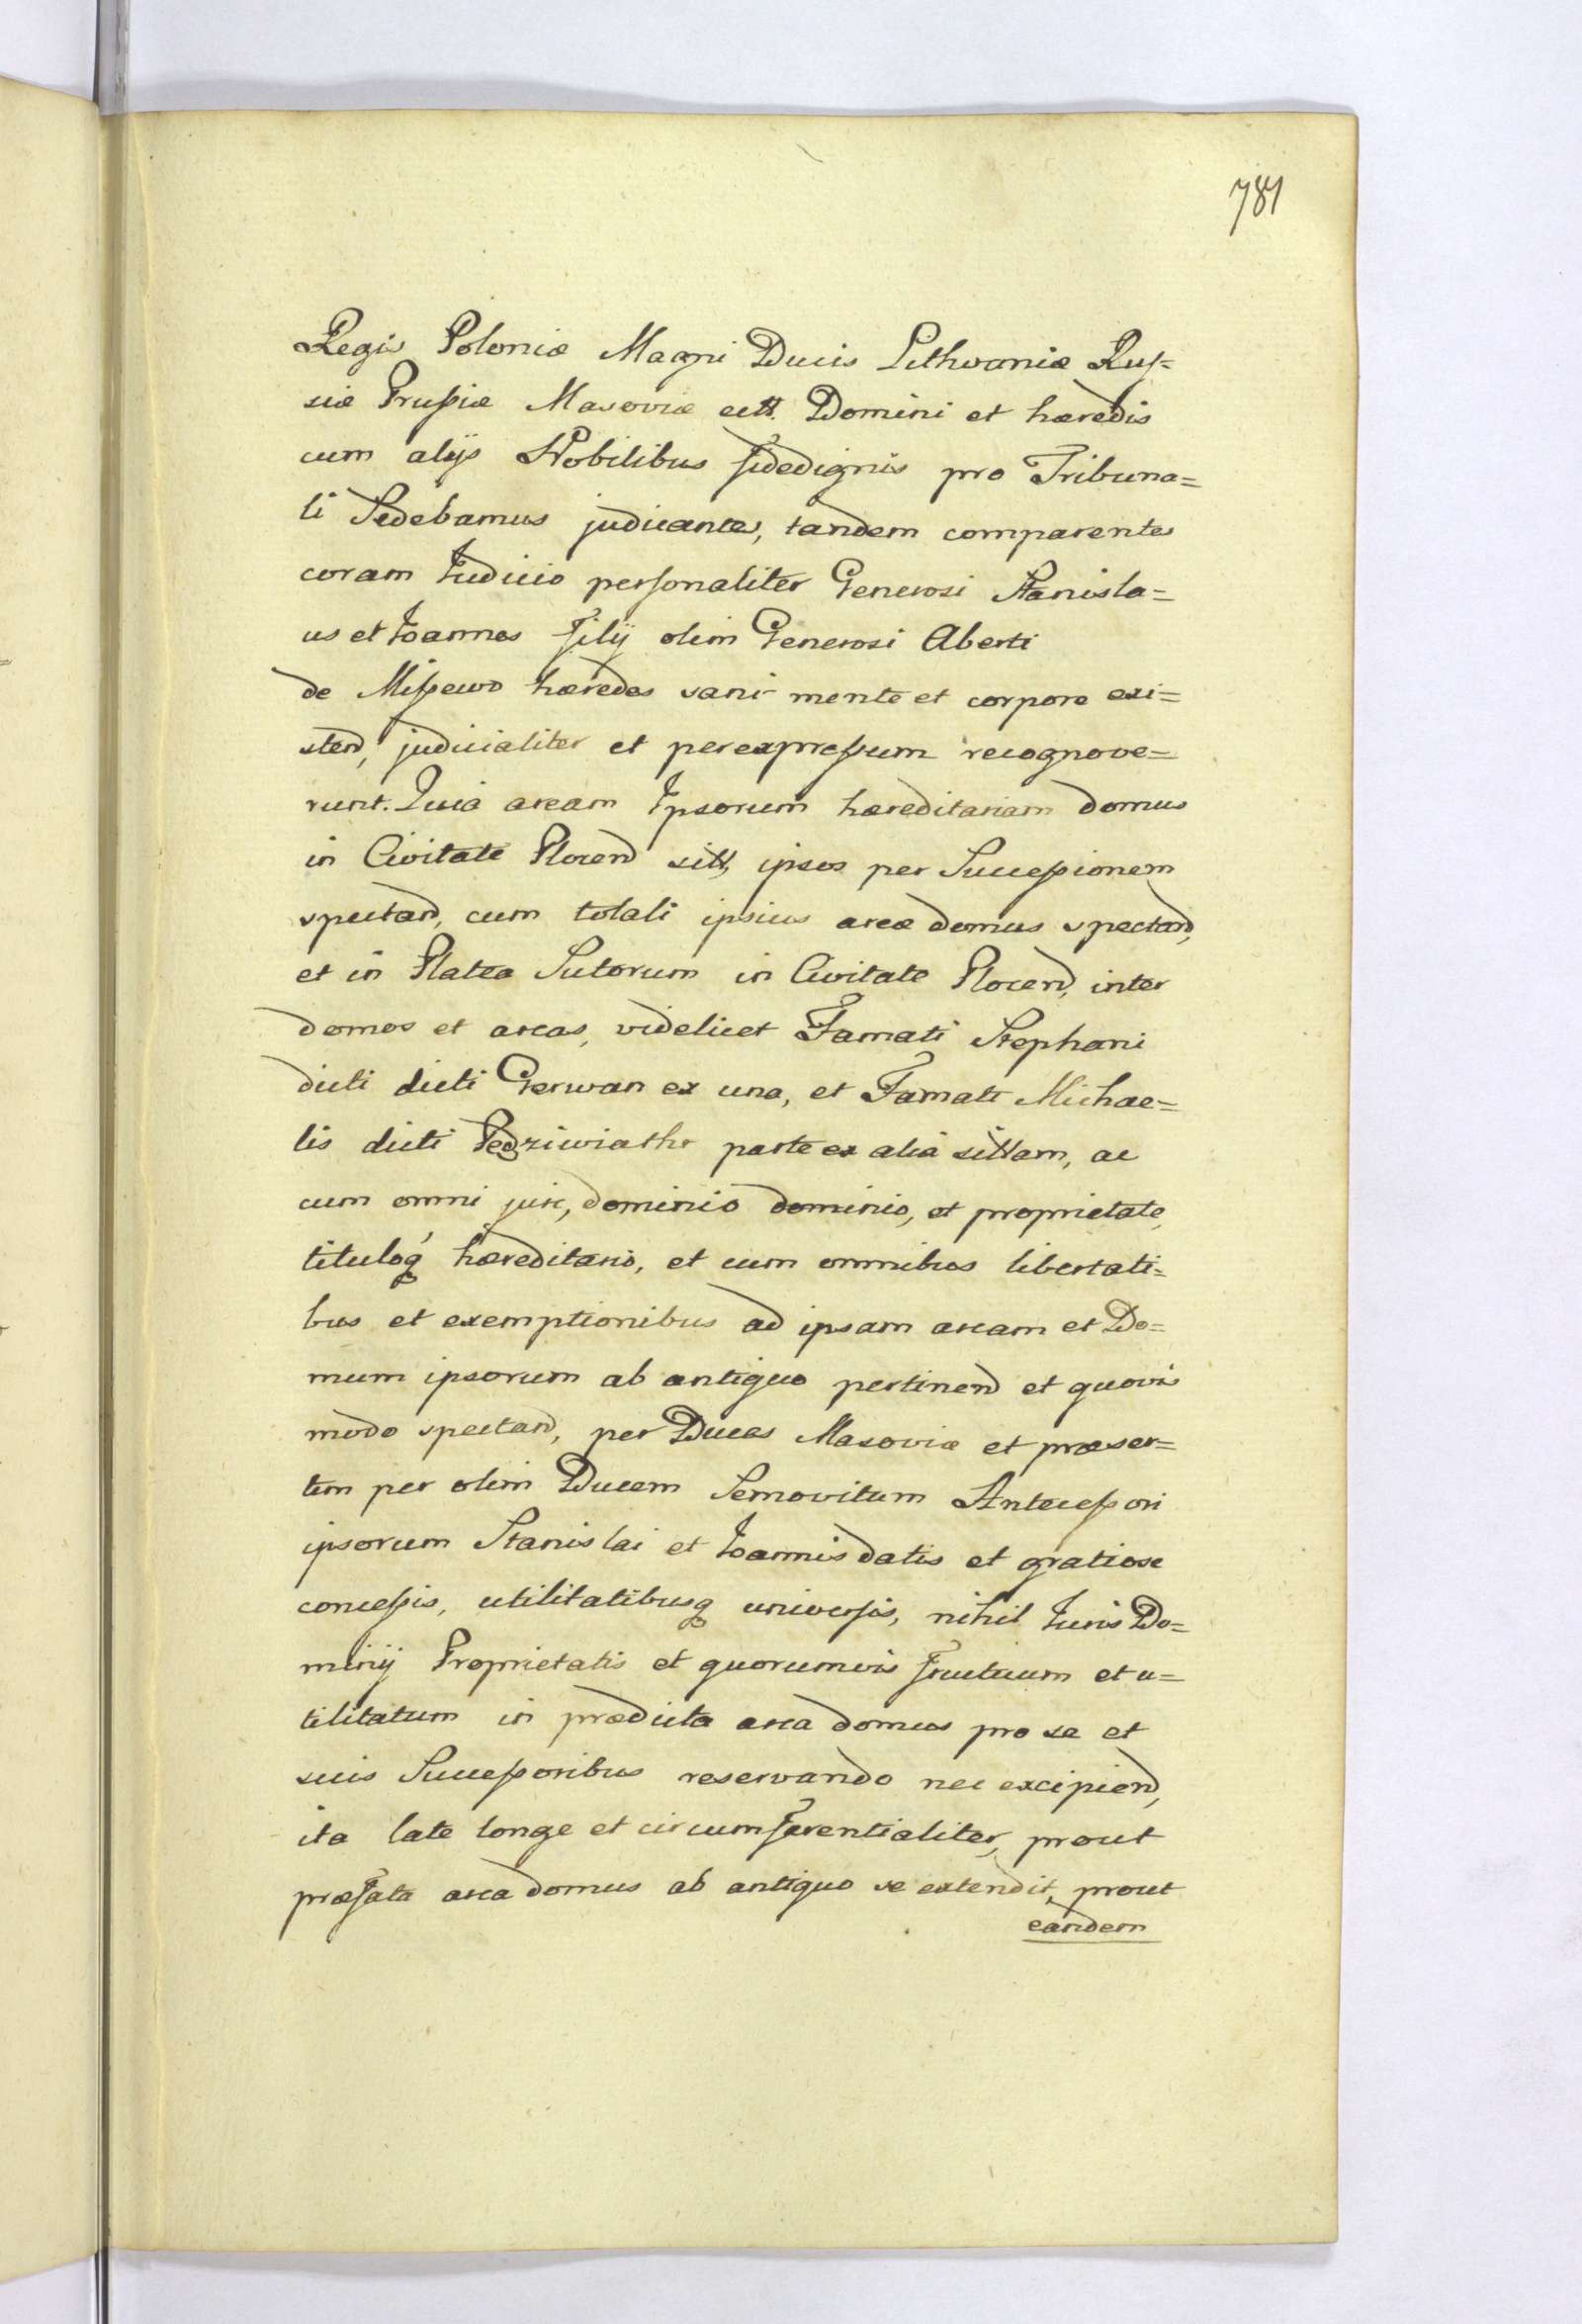 781
Regis Poloniæ Magni Ducis Lithvaniæ Rus=
siæ Prussiæ Masoviæ ectt. Domini et hæredis
cum alijs Nobilibus fidedignis pro Tribuna=
li Sedebamus judicantes, tandem comparentes
coram Iudicio personaliter Generosi Stanisla=
us et Ioannes filij olim Generosi Aberti
de Missewo hæredes sani mente et corpore exi=
stend, judicialiter et perexpressum recognove=
runt. Quia aream Ipsorum hæreditariam domus
in Civitate Plocend sitt, ipsos per Successionem
spectand, cum totali ipsius areæ domus spectand,
et in Platea Sutorum in Civitate Plocend, inter
domos et areas, videlicet Famati Stephani
dicti dicti Gerwan ex una, et Famati Michae=
lis dicti Pedziwiathr parte ex alia sittam, ac
cum omni jure, dominio dominio, et proprietate,
tituloq hæreditario, et cum omnibus libertati=
bus et exemptionibus ad ipsam aream et Do=
mum ipsorum ab antiquo pertinend et quovis
modo spectand, per Duces Masoviæ et præser=
tim per olim Ducem Semovitum Antecessori
ipsorum Stanislai et Ioannis datis et gratiose
concessis, utilitatibusq universis, nihil Iuris Do=
minij Proprietatis et quorumvis fructuum et u=
tilitatum in prædicta area domus pro se et
suis Successoribus reservando nec excipiend,
ita late longe et circumferentialiter, prout
præfata area domus ab antiquo se extendit, prout
eandem